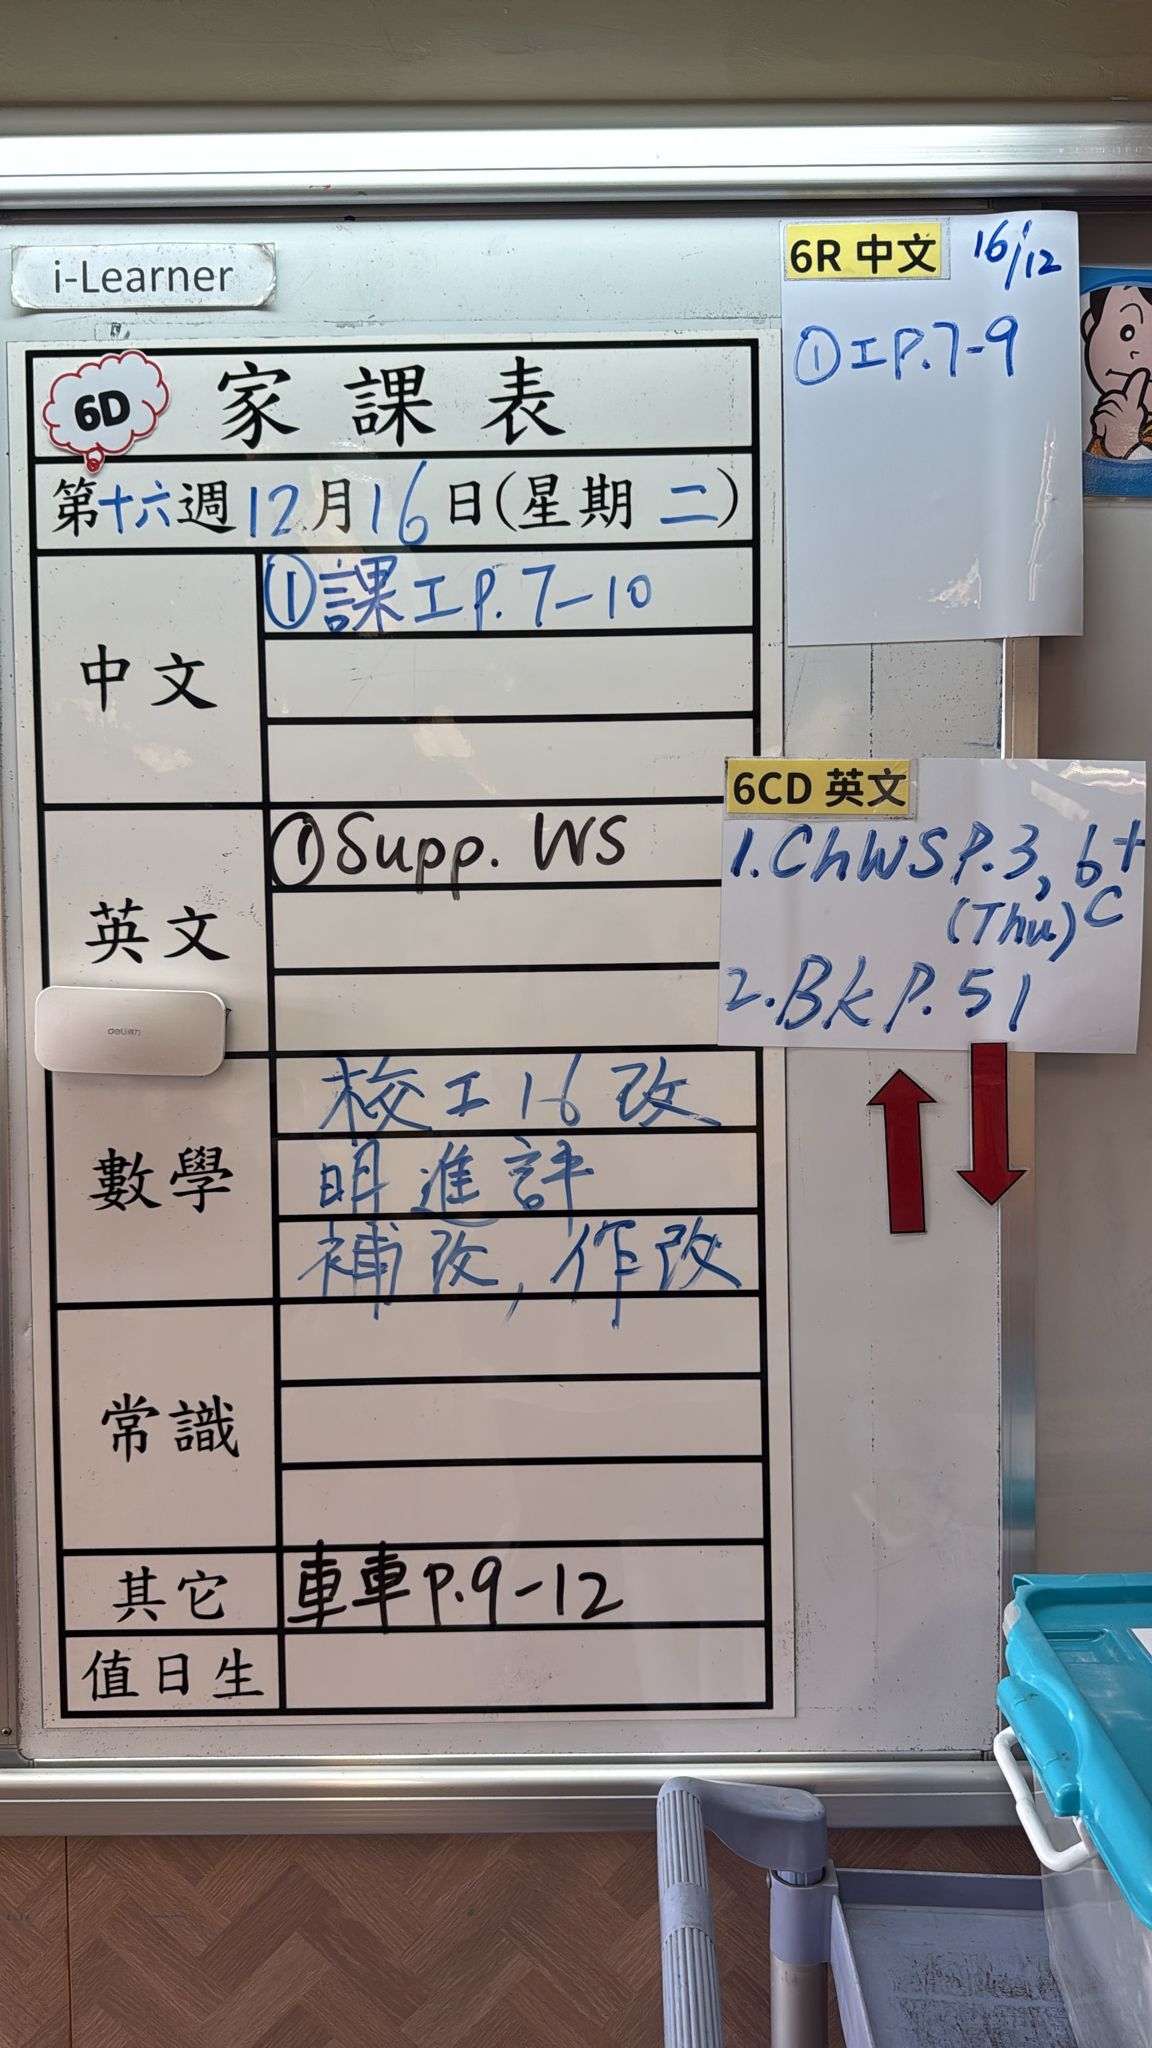 i-Learner
6D
家課表
第十六週12月16日(星期二)
中文
①課工P.7-10
英文
①Supp. WS
deli得力
數學
校工16改
明進評
補改,作改
常識
其它
車車P.9-12
值日生
6R 中文 16/12
①工P.7-9
6CD 英文
1.ChWSP.3, 6+
(Thu) C
2.BkP.51